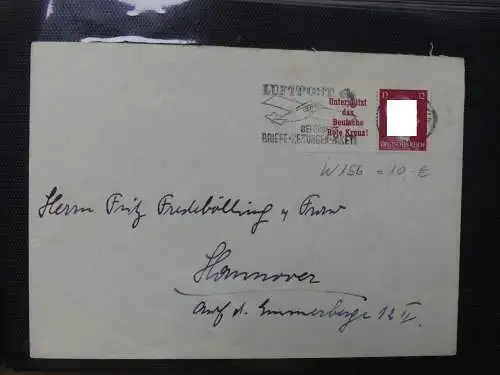 LUFTPOST
BEFÖRDERT
BRIEFE·ZEITUNGEN·PAKETE
Unterstützt
das
Deutsche
Rote Kreuz!
12 12
DEUTSCHES REICH
W 156 = 10.-€
Herrn Fritz Fredebölling u Frau
Hannover
Auf d. Emmerberge 12 II